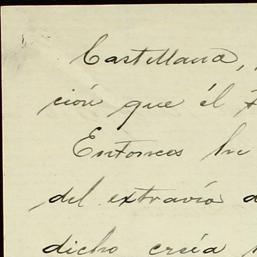 Castellana,
ción que él
Entonces he
del extravío
dicho creía